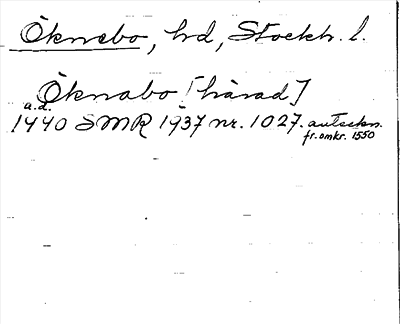 Öknebo, hd, Stockh. l.
Öknabo [härad]
a.d.
1440 SMR 1937 nr. 1027. anteckn.
fr. omkr. 1550